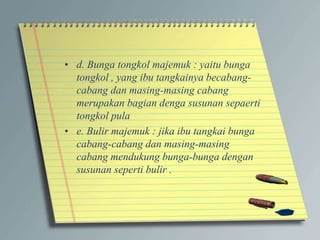 • d. Bunga tongkol majemuk : yaitu bunga
tongkol , yang ibu tangkainya becabang-
cabang dan masing-masing cabang
merupakan bagian denga susunan sepaerti
tongkol pula
• e. Bulir majemuk : jika ibu tangkai bunga
cabang-cabang dan masing-masing
cabang mendukung bunga-bunga dengan
susunan seperti bulir .